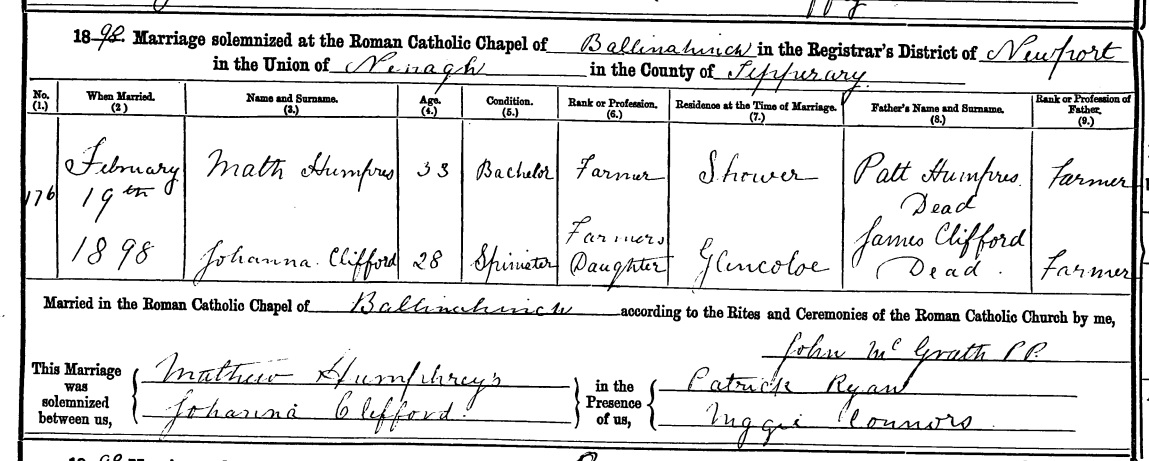 1898. Marriage solemnized at the Roman Catholic Chapel of Ballinahinch in the Registrar's District of Newport
in the Union of Nenagh in the County of Tipperary
No. (1.) When Married. (2) Name and Surname. (3.) Age. (4.) Condition. (5.) Rank or Profession. (6.) Residence at the Time of Marriage. (7.) Father's Name and Surname. (8.) Rank or Profession of Father. (9.)
176 February 19th 1898 Math Humpres 33 Bachelor Farmer Shower Patt Humpres. Dead Farmer
Johanna Clifford 28 Spinister Farmers Daughter Glencoloe James Clifford Dead. Farmer
Married in the Roman Catholic Chapel of Ballinahinch according to the Rites and Ceremonies of the Roman Catholic Church by me,
John McGrath P.P.
This Marriage was solemnized between us, Mathew Humphreys in the Presence of us, Patrick Ryan
Johanna Clifford Connors